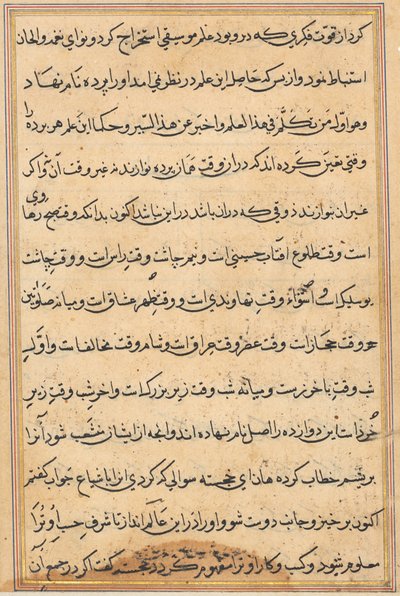 کرد از قوت فکری که در وبود علم موسیقی استخراج کرد و نوای نغمه والحان
استنباط نمود و از بس که حاصل این علم در نظر نمی امد اورا پرده نام نهاد
وهو اول من تکلم فی هذا العلم واخبر عن هذا السیر وحکما این علم هر پرده را
وقتی تعین کرده اند که در ان وقت همان پرده نوازند در غیر وقت آن تواکر
غیر ان نوازند ذوقی که در ان باشد در این نباشد اکنون بدانکه وقت صبح رهاوی
است و وقت طلوع افتاب حسینی است و نیم چاشت وقت راست و وقت چاشت
بوسلیک است و استواء وقت نهاوندی است و وقت ظهر عشاق است و میانه صلوتین
وقت حجاز است وقت عصر وقت عراق است و شام وقت مخالف است و اول
شب وقت باخرز است و میانه شب وقت زیر بزرک است و اخر شب وقت زیر
خرد است این دوازده را اصل نام نهاده اند وانچه از ایشان منشعب شود آنرا
بریشم خطاب کرده هان ای خجسته سوالی که کردی انرا باشباع جواب کفتم
اکنون برخیز و جانب دوست شو و او را در این عالم انداز تا شرف حسب او ترا
معلوم شود و کسب و کار او ترا مفهوم کردد خجسته کفت اکر در جمع آن